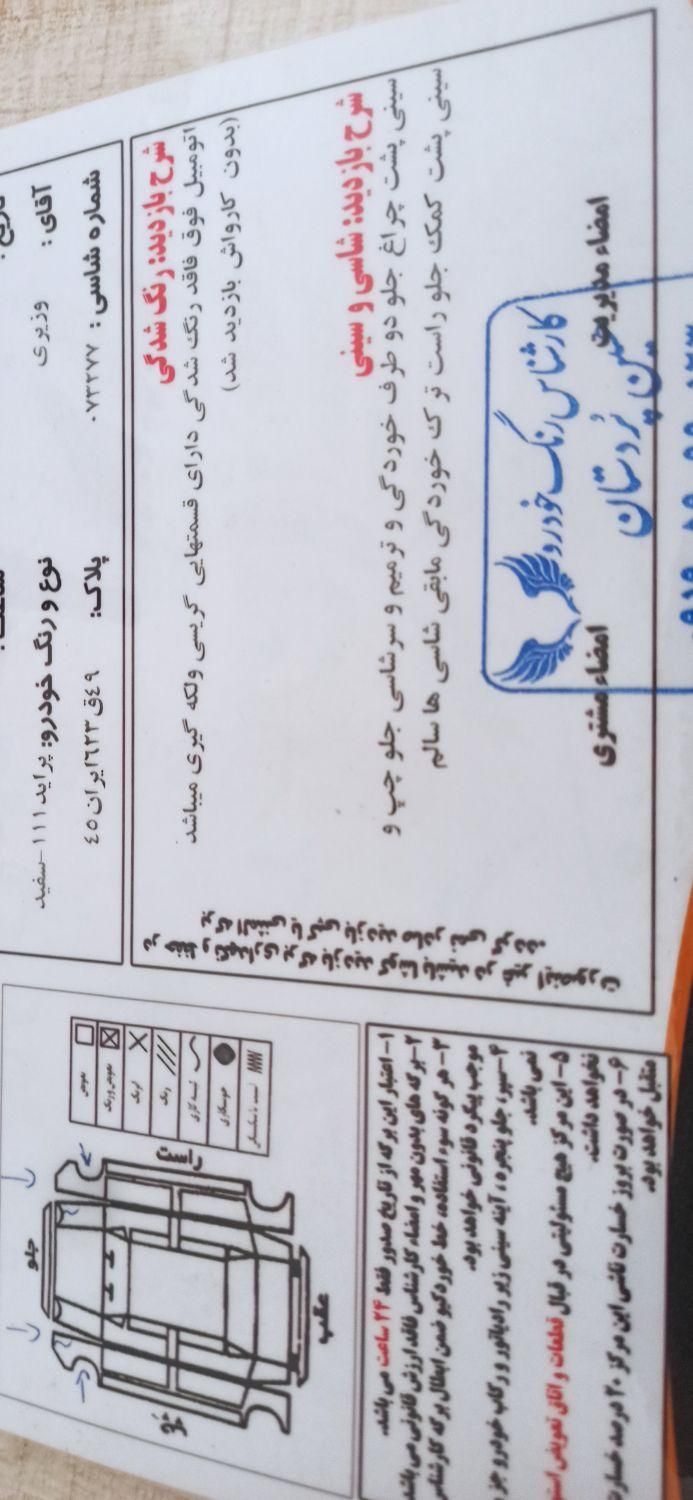 تاریخ:
آقای : وزیری
نوع و رنگ خودرو: پراید ۱۱۱ -سفید
شماره شاسی : ۰۷۳۲۷۷
پلاک: ٤٩ق٦٢٣ایران٤٥
شرح بازدید: رنگ شدگی
اتومبیل فوق فاقد رنگ شدگی دارای قسمتهایی گریسی ولکه گیری میباشد
(بدون کارواش بازدید شد)
شرح بازدید: شاسی و سینی
سینی پشت چراغ جلو دو طرف خوردگی و ترمیم و سرشاسی جلو چپ و
سینی پشت کمک جلو راست ترک خوردگی مابقی شاسی ها سالم
امضاء مدیریت
امضاء مشتری
کارشناس رنگ خودرو
پُردستان
در حفظ و نگهداری برگه بازدید کوشا باشید در غیر اینصورت
برگه المثنی یا کپی بازدید صادر نمی گردد.
جلو
راست
عقب
تعویض
تعویض ورنگ
رنگ
۱- اعتبار این برگه از تاریخ صدور فقط ۲۴ ساعت می باشد.
۲- برگه های بدون مهر و امضاء کارشناس فاقد ارزش قانونی می باشد
۳- هر گونه سوء استفاده، خط خوردگی و ضمن ابطال برگه کارشناس
موجب پیگرد قانونی خواهد بود.
۴- سپر، جلو پنجره، آینه سینی زیر رادیاتور و رکاب خودرو جز
نمی باشد.
۵- این مرکز هیچ مسئولیتی در قبال قطعات و اتاق تعویض است
نخواهد داشت.
۶- در صورت بروز خسارت ناشی این مرکز ۲۰ درصد خسارت
متقبل خواهد بود.